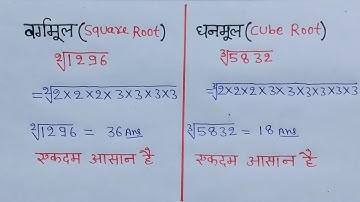 वर्गमूल (Square Root)
²√1296
=²√2×2×2×2×3×3×3×3
²√1296 = 36 Ans
एकदम आसान है
घनमूल (Cube Root)
³√5832
=³√2×2×2×3×3×3×3×3×3
³√5832 = 18 Ans
एकदम आसान है